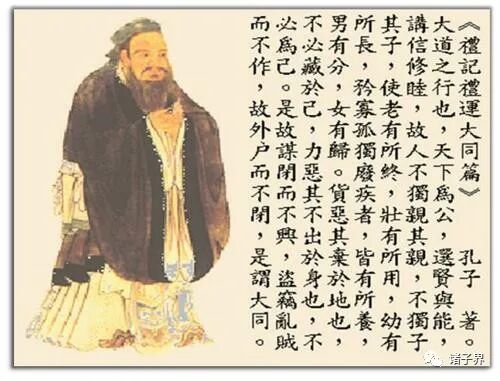 《禮記禮運大同篇》 孔子 著。
大道之行也，天下爲公，選賢與能，
講信修睦，故人不獨親其親，不獨子
其子，使老有所終，壯有所用，幼有
所長，矜寡孤獨廢疾者，皆有所養，
男有分，女有歸。貨惡其棄於地也，
不必藏於己，力惡其不出於身也，不
必爲己。是故謀閉而不興，盜竊亂賊
而不作，故外户而不閉，是謂大同。
诸子界